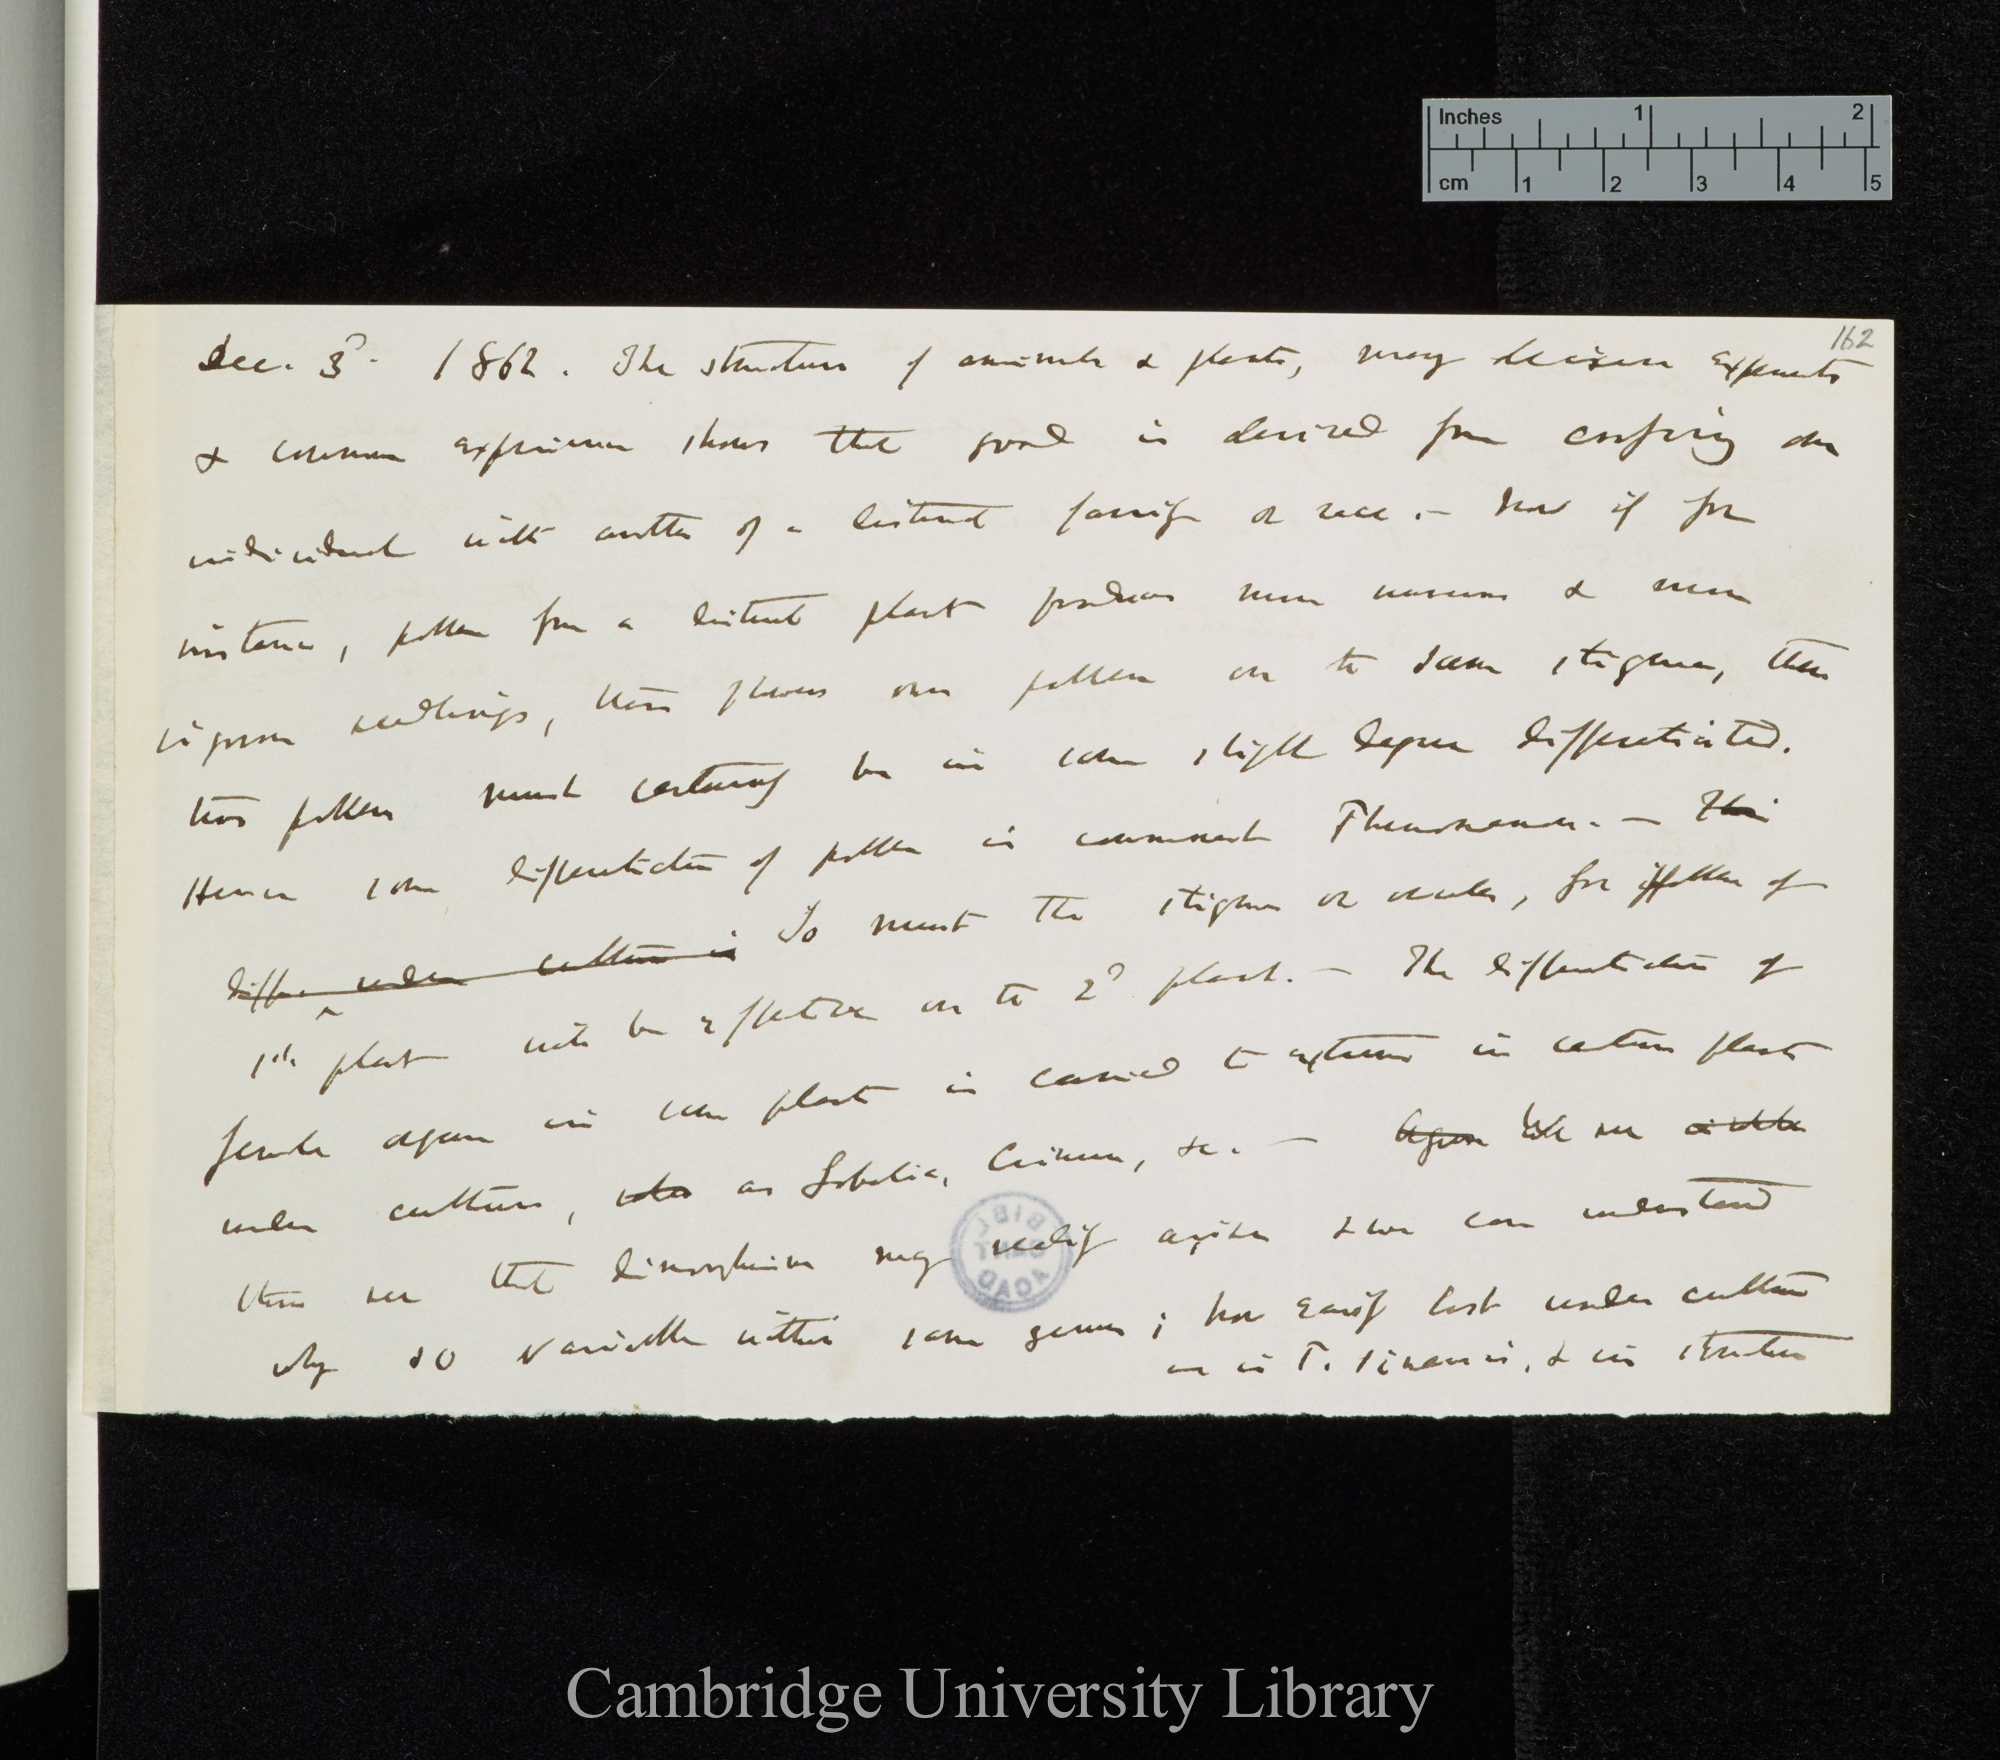 Inches 1 2
cm 1 2 3 4 5
162
Dec. 3d. 1862. The structure of animals & plants, many decisive experiments
& common experience shows that good is derived from crossing one
individual with another of a distinct family or race. — Now if for
instance, pollen from a distinct plant produces more numerous & more
vigorous seedlings, than flowers own pollen on the same stigma, then
this pollen must certainly be in some slight degree differentiated.
Hence some differentiation of pollen is commonest Phenomenon. — This
differ under culture is So must the stigma or ovules, for if pollen of
1st plant will be effective on the 2d plant. — The differentiation of
female organ in some plants is carried to extreme in certain plants
under culture, as Lobelia, Crinum, &c. — Again We see
then see that dimorphism may readily arise & we can understand
why so variable within same genus; how easily lost under culture
as in P. sinensis, & in structure
BIBL
ACAD
Cambridge University Library